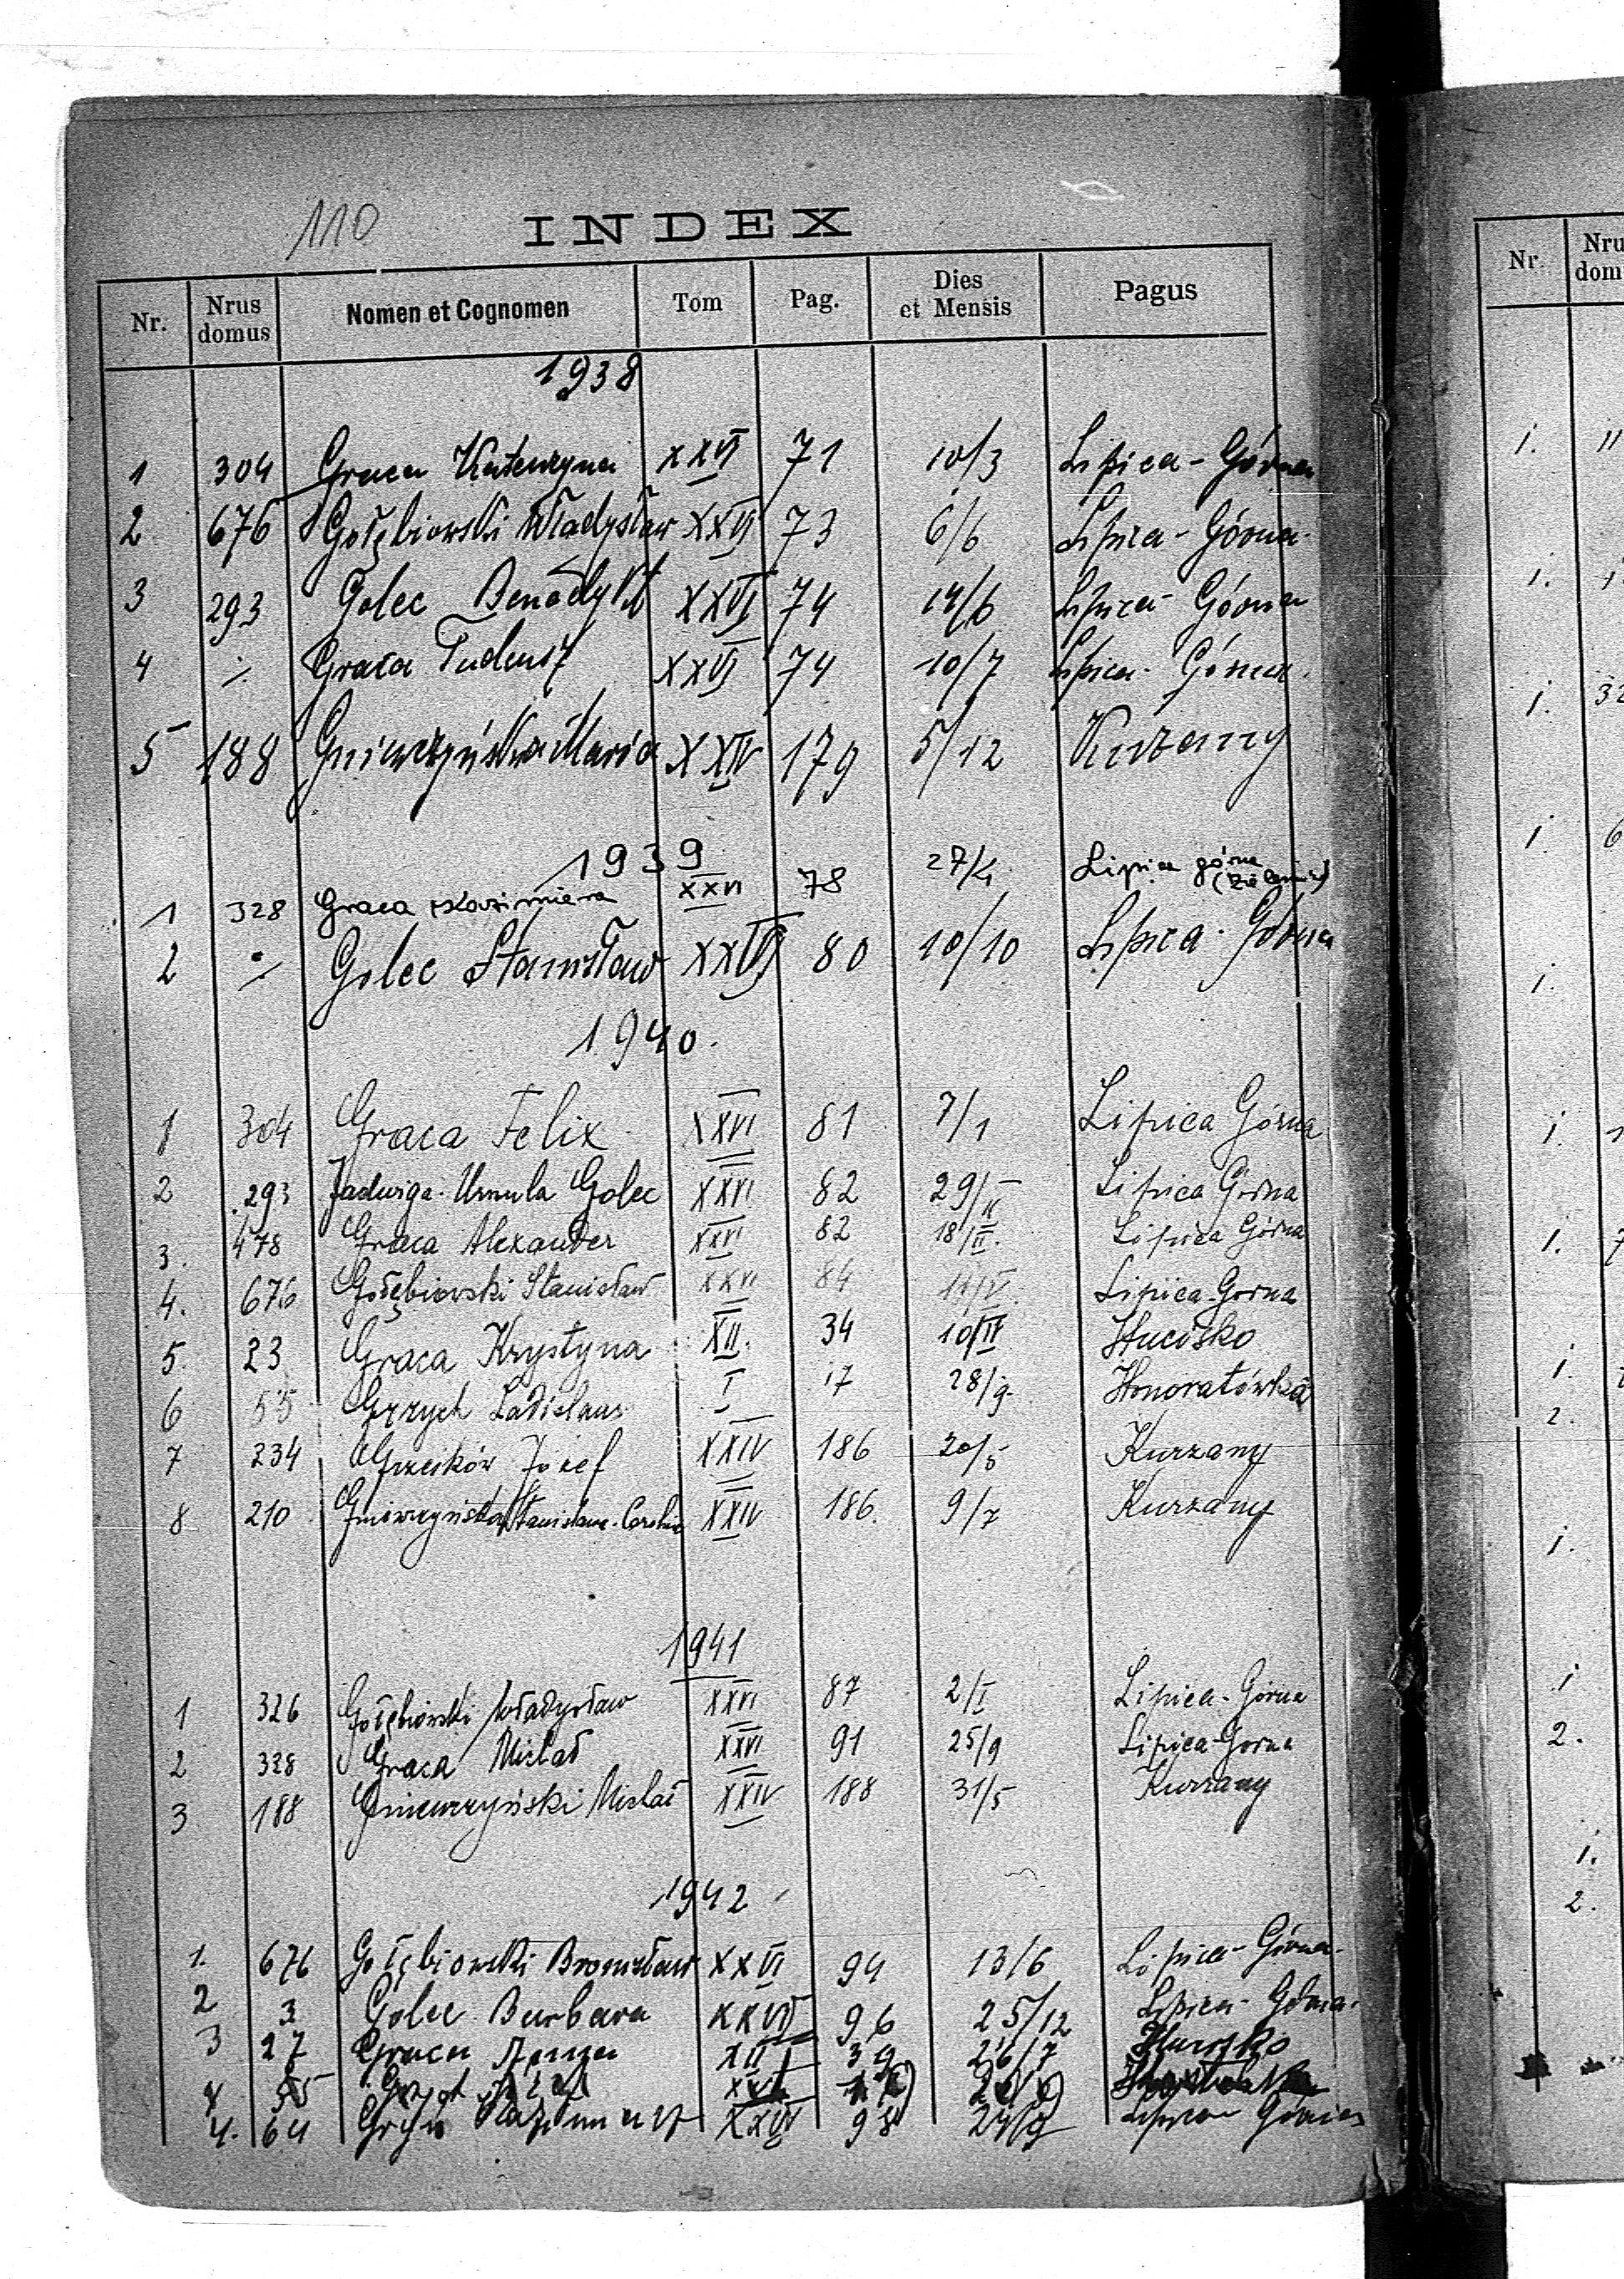 110
INDEX
Nr. Nrus domus Nomen et Cognomen Tom Pag. Dies et Mensis Pagus
1938
1 304 Graca Katarzyna XXVI 71 10/3 Lipica-Górna
2 676 Gołębiowski Władysław XXVI 73 6/6 Lipica-Górna
3 293 Golec Benedykt XXVI 74 14/6 Lipica-Górna
4 ·/· Graca Tadeusz XXVI 74 10/7 Lipica-Górna
5 188 Gniewrzyńska Maria XXIV 179 5/12 Kurzany
1939
1 328 Graca Kazimiera XXVI 78 27/4 Lipica górna
2 ·/· Golec Stanisław XXVI 80 10/10 Lipica-Górna
1940.
1 304 Graca Felix XXVI 81 7/1 Lipica Górna
2 293 Jadwiga-Ursula Golec XXVI 82 29/II Lipica Górna
3. 478 Graca Alexander XXVI 82 18/II. Lipica Górna
4. 676 Gołębiowski Stanisław XXVI 84 Lipica-Gorna
5. 23 Graca Krystyna XII. 34 Hucisko
6 55 Grzych Ladislaus I 17 28/9. Honoratówka
7 234 Józef XXIV 186 20/5 Kurzany
8 210 Gniewrzyńska Stanisława-Carolina XXIV 186. 9/7 Kurzany
1941
1 326 Gołębiowski Władysław XXVI 87 2/I Lipica-Górna
2 328 Graca Michał XXVI 91 25/9 Lipica-Gorna
3 188 Gniewrzyński Michał XXIV 188 31/5 Kurzany
1942
1. 676 Gołębiowski Bronisław XXVI 94 13/6 Lipica-Górna
2 3 Golec Barbara XXVI 96 25/12 Lipica-Górna
3 27 Graca XII 39 26/7 Hucisko
4 55
4. 64 XXVI 98 Lipica Górna
Nr. Nru dom